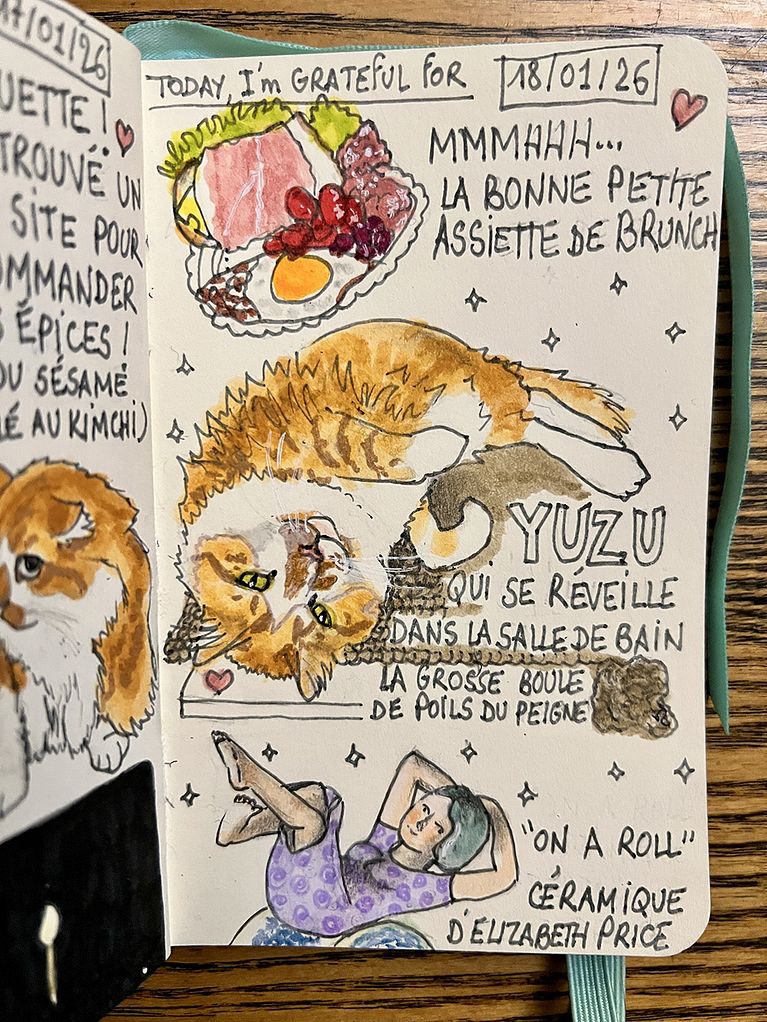 17/01/26
UETTE !
TROUVÉ UN
SITE POUR
OMMANDER
S ÉPICES !
OU SÉSAMÉ
LÉ AU KIMCHI)
TODAY, I'm GRATEFUL FOR
18/01/26
MMMHHH...
LA BONNE PETITE
ASSIETTE DE BRUNCH
YUZU
QUI SE RÉVEILLE
DANS LA SALLE DE BAIN
LA GROSSE BOULE
DE POILS DU PEIGNE
"ON A ROLL"
CÉRAMIQUE
D'ELIZABETH PRICE